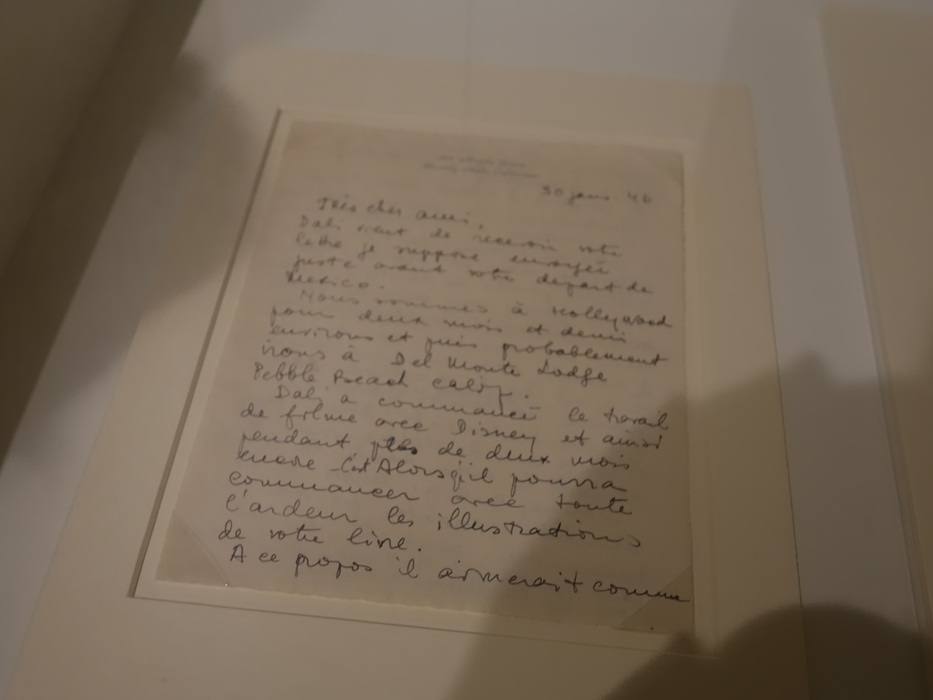 30 janv 46
Très cher ami,
Dali vient de recevoir votre
lettre je suppose envoyée
juste avant votre depart de
Mexico.
Nous sommes à Hollywood
pour deux mois et demis
environs et puis probablement
irons à Del Monte Lodge
Pebble Beach calif.
Dali a commancé le travail
de filme avec Disney et ainsi
pendant plus de deux mois
encore - C'est Alors qu'il pourra
commancer avec toute
l'ardeur les illustrations
de votre livre.
A ce propos il aimerait comme